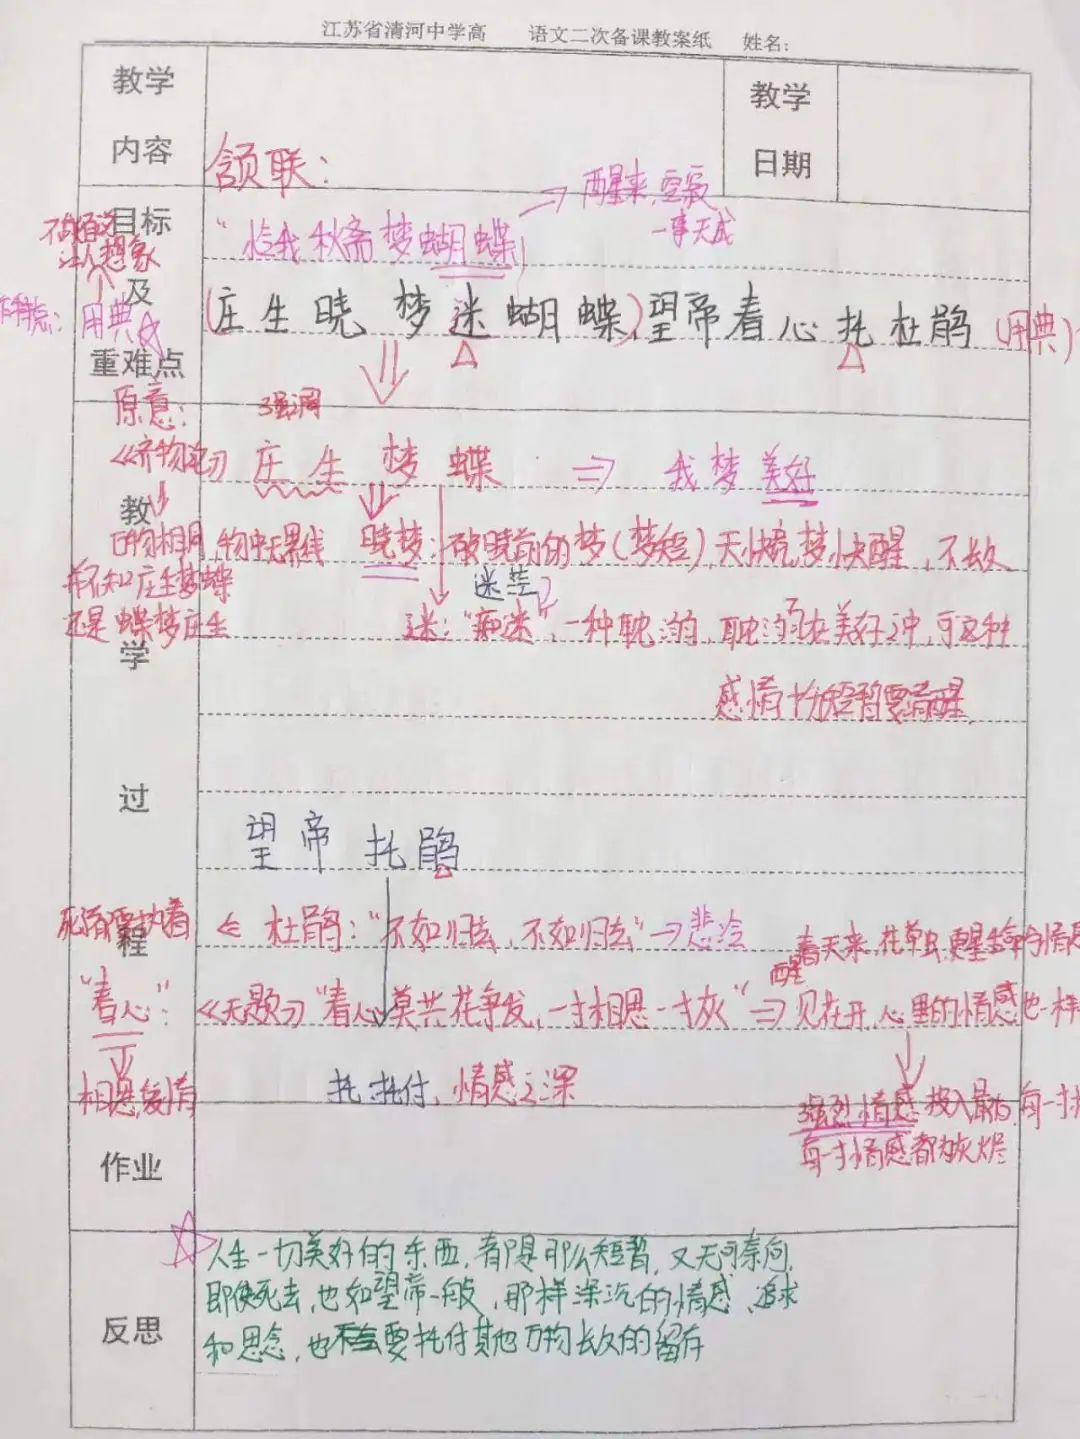 江苏省清河中学高 语文二次备课教案纸 姓名:
教学
内容
教学
日期
颔联:
⇒ 醒来,空寂
一事无成
目标
及
重难点
让人想象
用典
"怆我秋斋梦蝴蝶
(庄生晓梦迷蝴蝶)望帝春心托杜鹃(用典)
原意: 强调
《齐物论》 庄生梦蝶 ⇒ 我梦美好
教
物中无界线 晓梦: 破晓前的梦(梦短),天快亮,梦快醒,不长久
并不知庄生梦蝶
还是蝶梦庄生
迷茫
迷:"痴迷",一种耽溺,耽溺在美好之中,可这种
感情十分短暂要清醒
学
过
望帝托鹃
程
死后还要执着 ⇐ 杜鹃:"不如归去,不如归去"→悲冷
春天来,花草虫,更是生命与情感
醒
"春心": 《无题》"春心莫共花争发,一寸相思一寸灰" ⇒ 见花开,心里的情感也一样
相思,爱情
托:托付,情感之深
强烈情感投入最后,每一寸
每一寸情感都为灰烬
作业
反思
人生一切美好的东西,都是那么短暂,又无可奈何,
即使死去,也如望帝一般,那样深沉的情感、追求
和思念,也要托付其他万物长久的留存